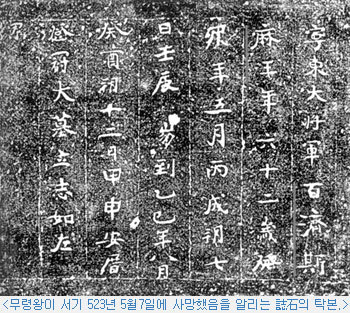 寧東大將軍百濟斯
麻王年六十二歲癸
卯年五月丙戌朔七
日壬辰崩到乙巳年八月
癸酉朔十二日甲申安厝
登冠大墓立志如左
<무령왕이 서기 523년 5월7일에 사망했음을 알리는 誌石의 탁본.>